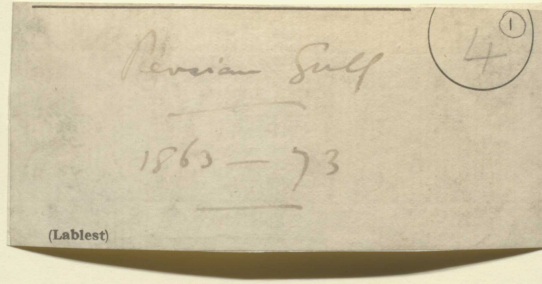 1
4
Persian Gulf
1863 — 73
(Lablest)